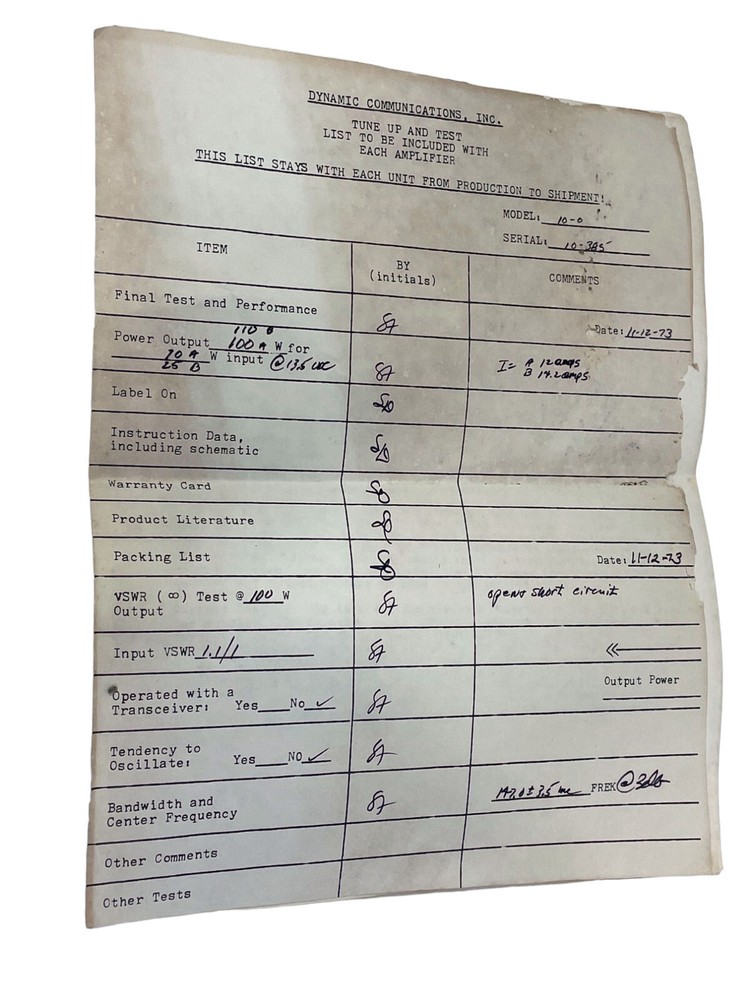 DYNAMIC COMMUNICATIONS, INC.
TUNE UP AND TEST
LIST TO BE INCLUDED WITH
EACH AMPLIFIER
THIS LIST STAYS WITH EACH UNIT FROM PRODUCTION TO SHIPMENT!
MODEL: 10-0
SERIAL: 10-385
ITEM
BY
(initials)
COMMENTS
Final Test and Performance
Date: 11-12-73
110 B
Power Output 100 A W for
70 A W input @ 13.5 VDC
25 B
I= A 12 amps
B 14.2 amps
Label On
Instruction Data,
including schematic
Warranty Card
Product Literature
Packing List
Date: 11-12-73
VSWR (∞) Test @ 100 W
Output
open & short circuit
Input VSWR 1.1/1
Output Power
Operated with a
Transceiver: Yes No ✓
Tendency to
Oscillate: Yes NO ✓
Bandwidth and
Center Frequency
147.0 ± 3.5 mc FREK @ 3db
Other Comments
Other Tests